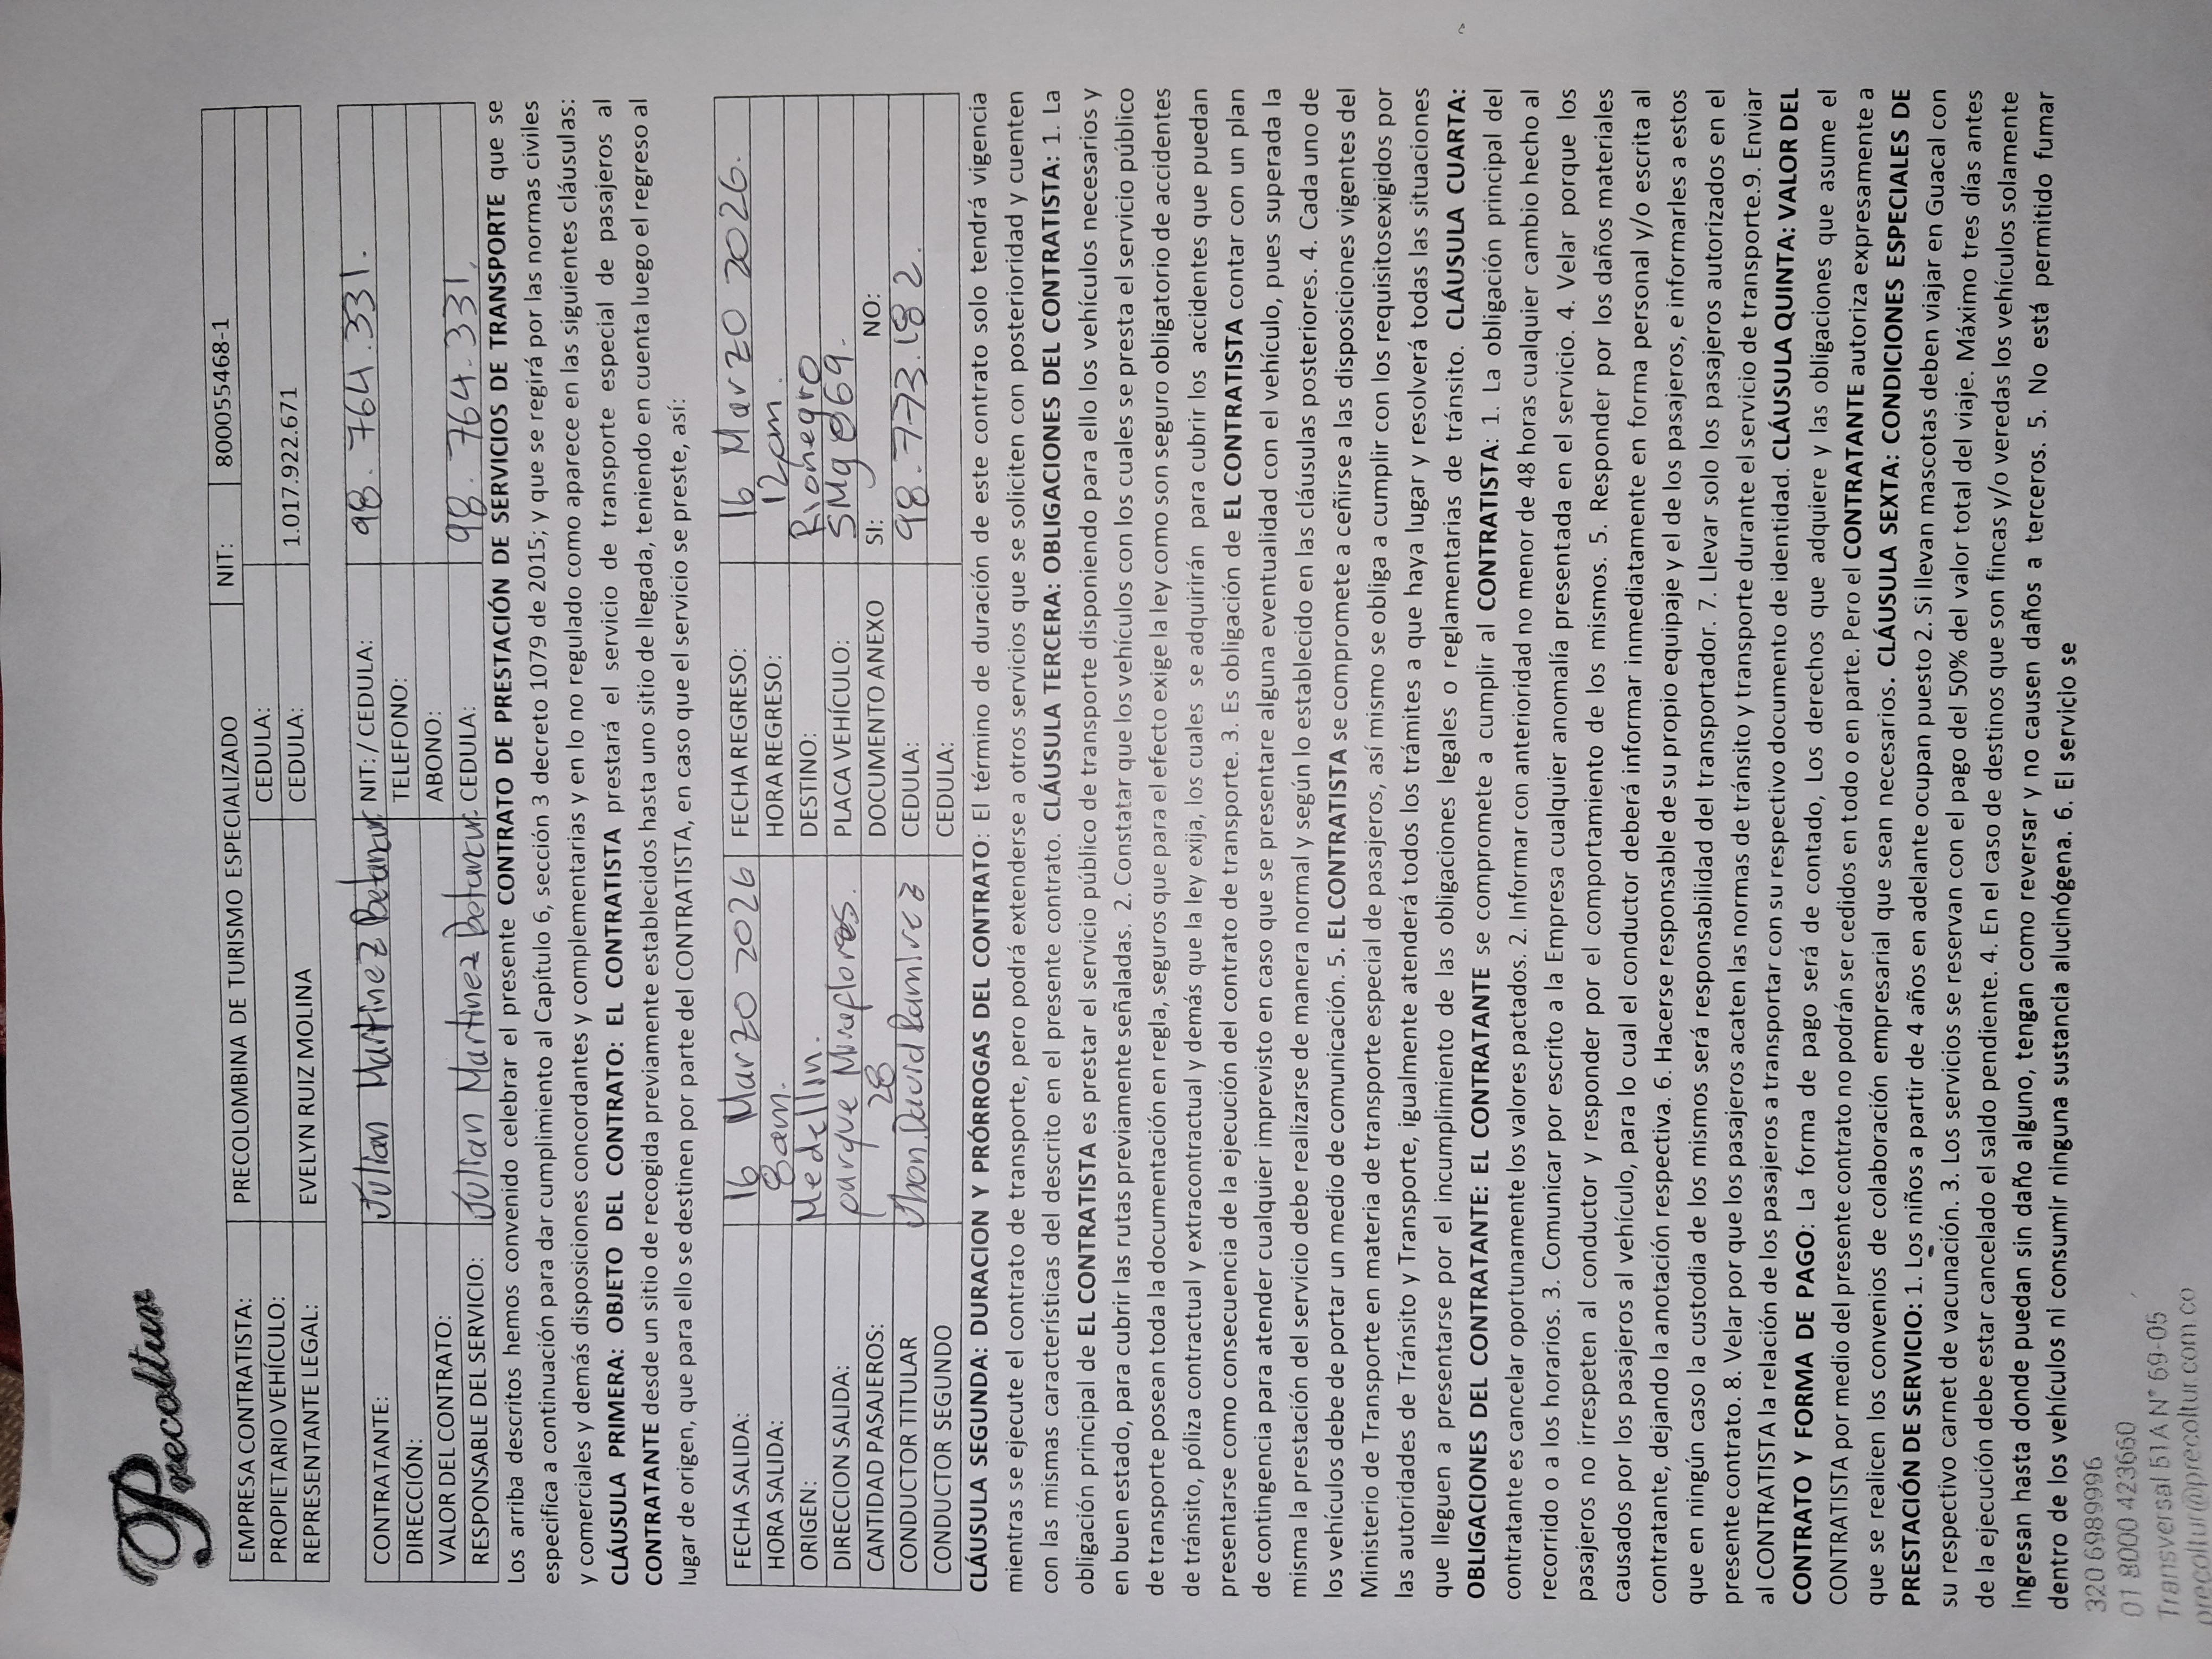 Precoltur
EMPRESA CONTRATISTA: PRECOLOMBINA DE TURISMO ESPECIALIZADO NIT: 800055468-1
PROPIETARIO VEHÍCULO: CEDULA:
REPRESENTANTE LEGAL: EVELYN RUIZ MOLINA CEDULA: 1.017.922.671
CONTRATANTE: Julian Martinez Betancur NIT: / CEDULA: 98.764.331.
DIRECCIÓN: TELEFONO:
VALOR DEL CONTRATO: ABONO:
RESPONSABLE DEL SERVICIO: Julian Martinez Betancur. CEDULA: 98.764.331.
Los arriba descritos hemos convenido celebrar el presente CONTRATO DE PRESTACIÓN DE SERVICIOS DE TRANSPORTE que se
especifica a continuación para dar cumplimiento al Capítulo 6, sección 3 decreto 1079 de 2015; y que se regirá por las normas civiles
y comerciales y demás disposiciones concordantes y complementarias y en lo no regulado como aparece en las siguientes cláusulas:
CLÁUSULA PRIMERA: OBJETO DEL CONTRATO: EL CONTRATISTA prestará el servicio de transporte especial de pasajeros al
CONTRATANTE desde un sitio de recogida previamente establecidos hasta uno sitio de llegada, teniendo en cuenta luego el regreso al
lugar de origen, que para ello se destinen por parte del CONTRATISTA, en caso que el servicio se preste, así:
FECHA SALIDA: 16 Marzo 2026 FECHA REGRESO: 16 Marzo 2026.
HORA SALIDA: 8am. HORA REGRESO: 12pm.
ORIGEN: Medellin. DESTINO: Rionegro
DIRECCION SALIDA: parque Miraflores. PLACA VEHÍCULO:
CANTIDAD PASAJEROS: 28 DOCUMENTO ANEXO SI: NO:
CONDUCTOR TITULAR Jhon David Ramirez CEDULA: 98.773.182.
CONDUCTOR SEGUNDO CEDULA:
CLÁUSULA SEGUNDA: DURACION Y PRÓRROGAS DEL CONTRATO: El término de duración de este contrato solo tendrá vigencia
mientras se ejecute el contrato de transporte, pero podrá extenderse a otros servicios que se soliciten con posterioridad y cuenten
con las mismas características del descrito en el presente contrato. CLÁUSULA TERCERA: OBLIGACIONES DEL CONTRATISTA: 1. La
obligación principal de EL CONTRATISTA es prestar el servicio público de transporte disponiendo para ello los vehículos necesarios y
en buen estado, para cubrir las rutas previamente señaladas. 2. Constatar que los vehículos con los cuales se presta el servicio público
de transporte posean toda la documentación en regla, seguros que para el efecto exige la ley como son seguro obligatorio de accidentes
de tránsito, póliza contractual y extracontractual y demás que la ley exija, los cuales se adquirirán para cubrir los accidentes que puedan
presentarse como consecuencia de la ejecución del contrato de transporte. 3. Es obligación de EL CONTRATISTA contar con un plan
de contingencia para atender cualquier imprevisto en caso que se presentare alguna eventualidad con el vehículo, pues superada la
misma la prestación del servicio debe realizarse de manera normal y según lo establecido en las cláusulas posteriores. 4. Cada uno de
los vehículos debe de portar un medio de comunicación. 5. EL CONTRATISTA se compromete a ceñirse a las disposiciones vigentes del
Ministerio de Transporte en materia de transporte especial de pasajeros, así mismo se obliga a cumplir con los requisitosexigidos por
las autoridades de Tránsito y Transporte, igualmente atenderá todos los trámites a que haya lugar y resolverá todas las situaciones
que lleguen a presentarse por el incumplimiento de las obligaciones legales o reglamentarias de tránsito. CLÁUSULA CUARTA:
OBLIGACIONES DEL CONTRATANTE: EL CONTRATANTE se compromete a cumplir al CONTRATISTA: 1. La obligación principal del
contratante es cancelar oportunamente los valores pactados. 2. Informar con anterioridad no menor de 48 horas cualquier cambio hecho al
recorrido o a los horarios. 3. Comunicar por escrito a la Empresa cualquier anomalía presentada en el servicio. 4. Velar porque los
pasajeros no irrespeten al conductor y responder por el comportamiento de los mismos. 5. Responder por los daños materiales
causados por los pasajeros al vehículo, para lo cual el conductor deberá informar inmediatamente en forma personal y/o escrita al
contratante, dejando la anotación respectiva. 6. Hacerse responsable de su propio equipaje y el de los pasajeros, e informarles a estos
que en ningún caso la custodia de los mismos será responsabilidad del transportador. 7. Llevar solo los pasajeros autorizados en el
presente contrato. 8. Velar por que los pasajeros acaten las normas de tránsito y transporte durante el servicio de transporte.9. Enviar
al CONTRATISTA la relación de los pasajeros a transportar con su respectivo documento de identidad. CLÁUSULA QUINTA: VALOR DEL
CONTRATO Y FORMA DE PAGO: La forma de pago será de contado, Los derechos que adquiere y las obligaciones que asume el
CONTRATISTA por medio del presente contrato no podrán ser cedidos en todo o en parte. Pero el CONTRATANTE autoriza expresamente a
que se realicen los convenios de colaboración empresarial que sean necesarios. CLÁUSULA SEXTA: CONDICIONES ESPECIALES DE
PRESTACIÓN DE SERVICIO: 1. Los niños a partir de 4 años en adelante ocupan puesto 2. Si llevan mascotas deben viajar en Guacal con
su respectivo carnet de vacunación. 3. Los servicios se reservan con el pago del 50% del valor total del viaje. Máximo tres días antes
de la ejecución debe estar cancelado el saldo pendiente. 4. En el caso de destinos que son fincas y/o veredas los vehículos solamente
ingresan hasta donde puedan sin daño alguno, tengan como reversar y no causen daños a terceros. 5. No está permitido fumar
dentro de los vehículos ni consumir ninguna sustancia alucinógena. 6. El servicio se
320 6989996
01 8000 423660
Transversal 51A N° 69-05
precoltur@precoltur.com.co